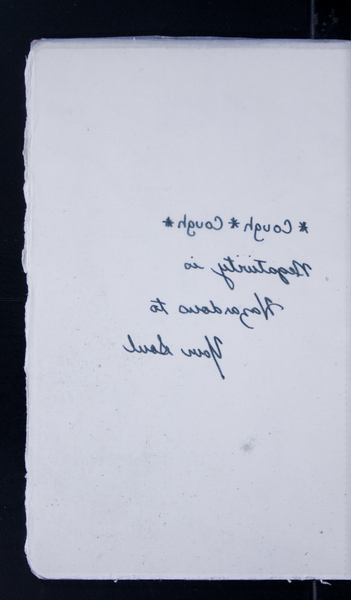 *Cough*Cough*
Negativity is
Hazardous to
Your Soul